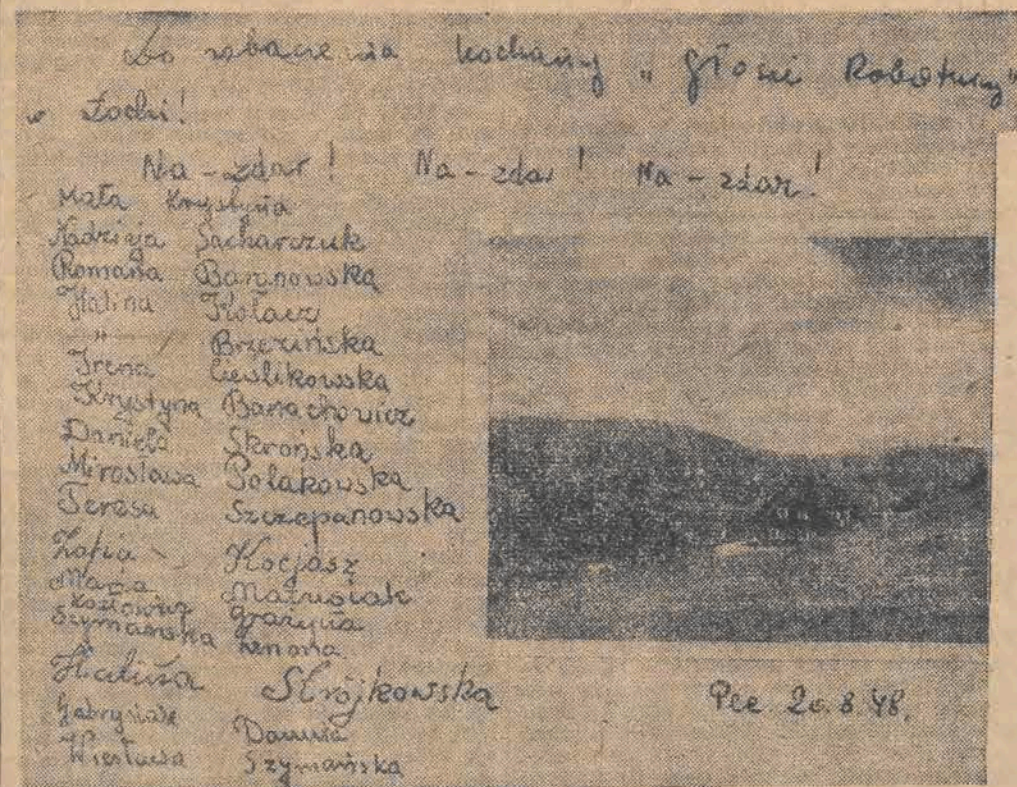 Do zobaczenia kochany „Głosie Robotniczy"
w Łodzi!
Na-zdar! Na-zdar! Na-zdar!
Mała Krystyna
Nadzieja Sacharczuk
Romana Baranowska
Halina Kołacz
" Brzezińska
Irena Cieślikowska
Krystyna Banachowicz
Daniela Skrońska
Mirosława Polakowska
Teresa Szczepanowska
Zofia Kocjasz
Maria Matusiak
Kozłowska Grażyna
Szymańska Zenona
Halina Strójkowska
Gabrysiak Danuta
Wiesława Szymańska
Pec 20.8.48.